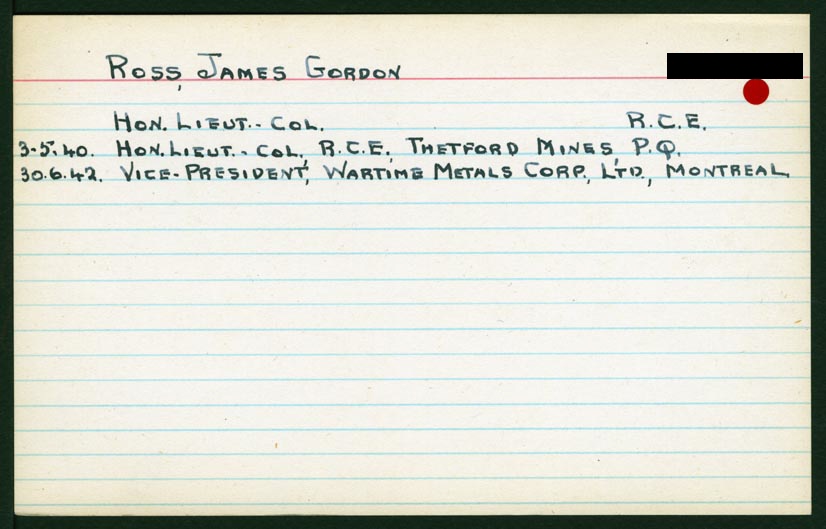 Ross, James Gordon
Hon. Lieut.-Col. R.C.E.
3-5-40. Hon. Lieut.-Col., R.C.E., Thetford Mines, P.Q.
30.6.42. Vice-President, Wartime Metals Corp., Ltd., Montreal